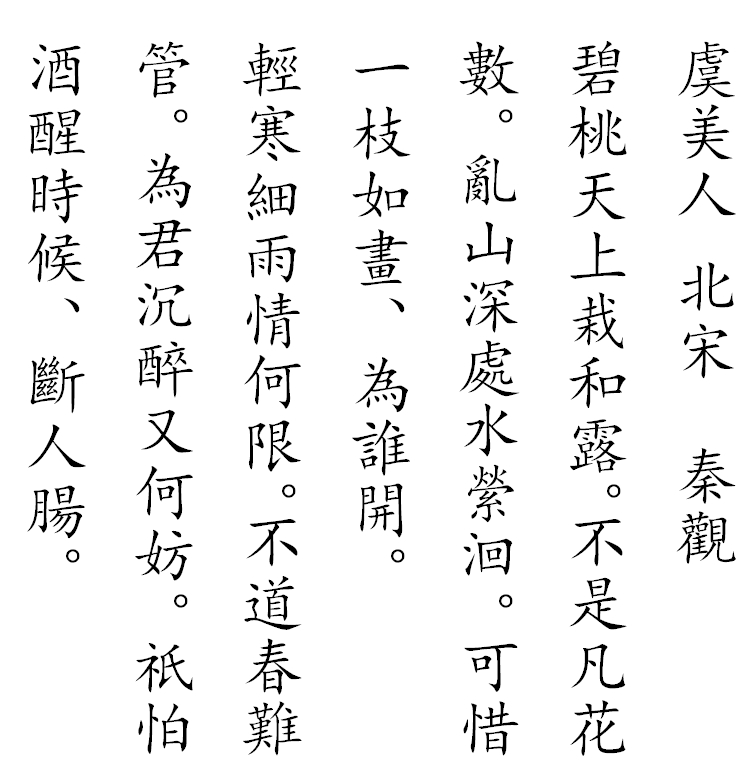 虞美人　北宋　秦觀
碧桃天上栽和露。不是凡花
數。亂山深處水縈洄。可惜
一枝如畫、為誰開。
輕寒細雨情何限。不道春難
管。為君沉醉又何妨。祇怕
酒醒時候、斷人腸。